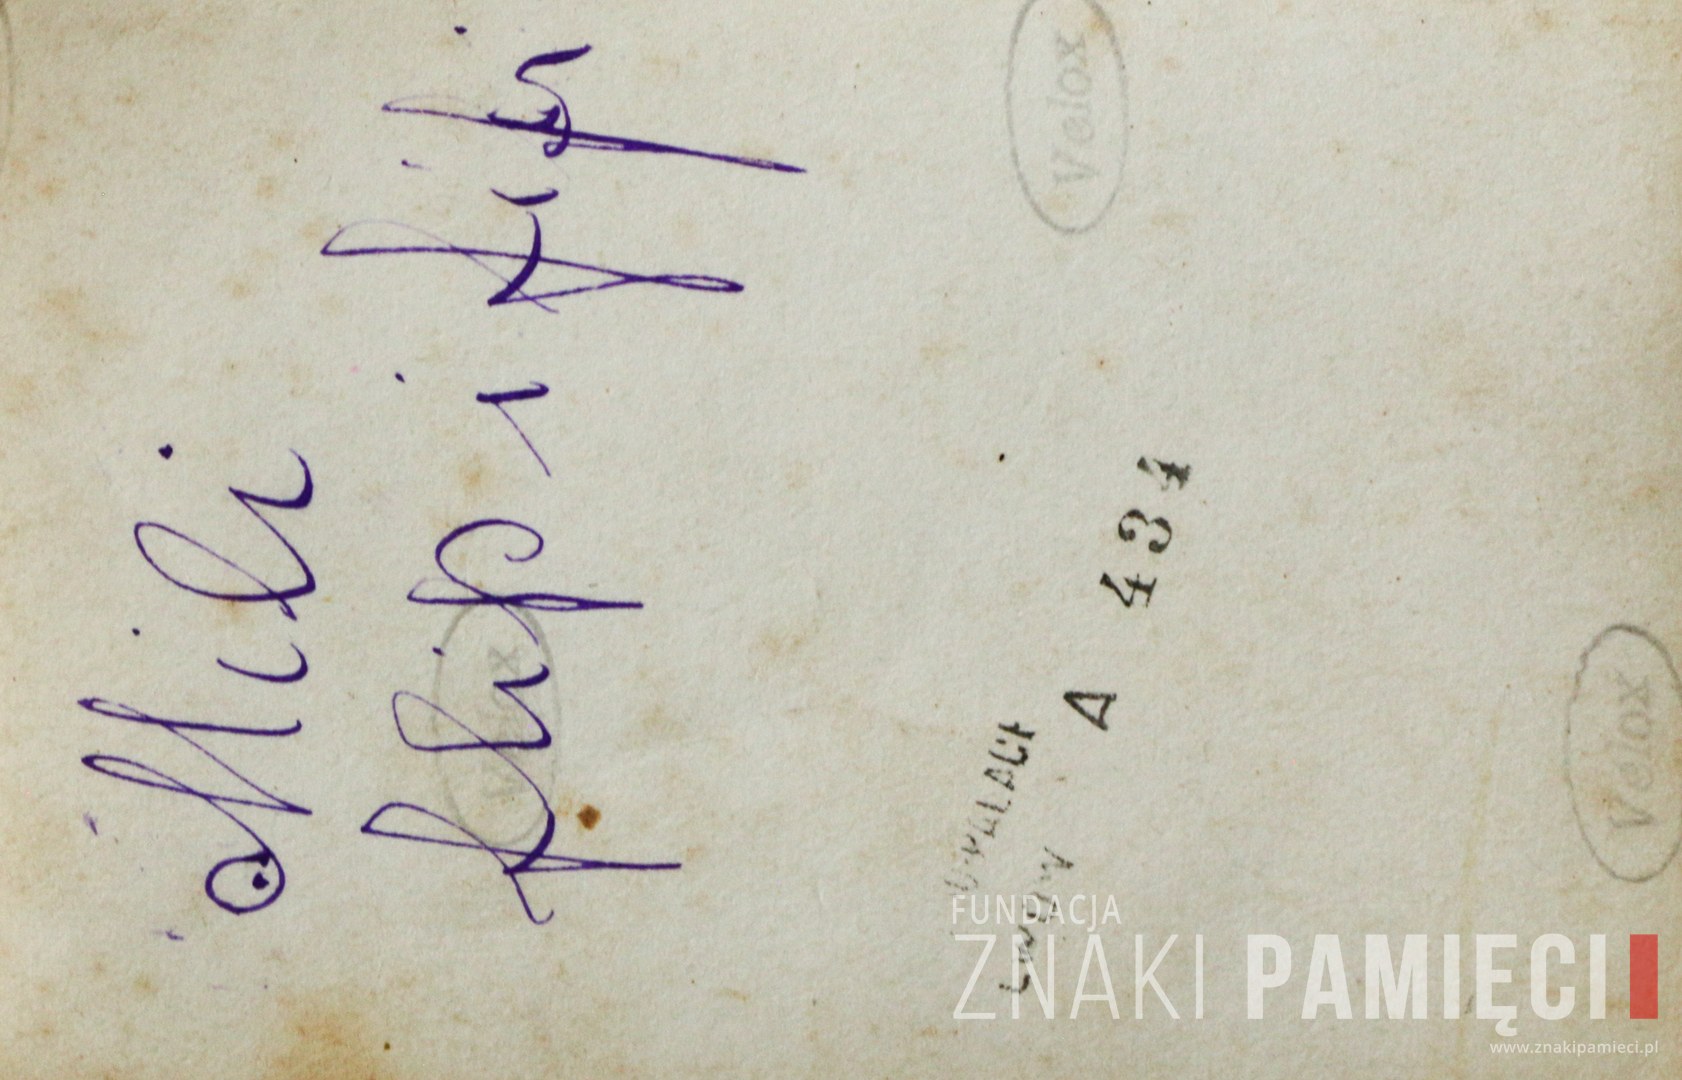 Mili
flip i
Velox
Velox
Velox
LWÓW
A 434
FUNDACJA
ZNAKI PAMIĘCI
www.znakipamieci.pl